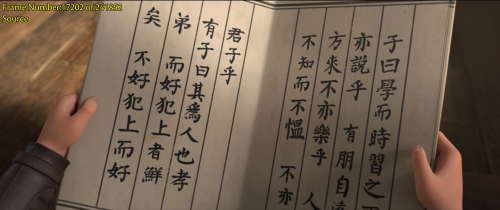 Frame Number:17202 of
Source
子曰學而時習之不
亦說乎 有朋自遠
方來不亦樂乎 人
不知而不慍 不亦
君子乎
有子曰其爲人也孝
弟 而好犯上者鮮
矣 不好犯上而好